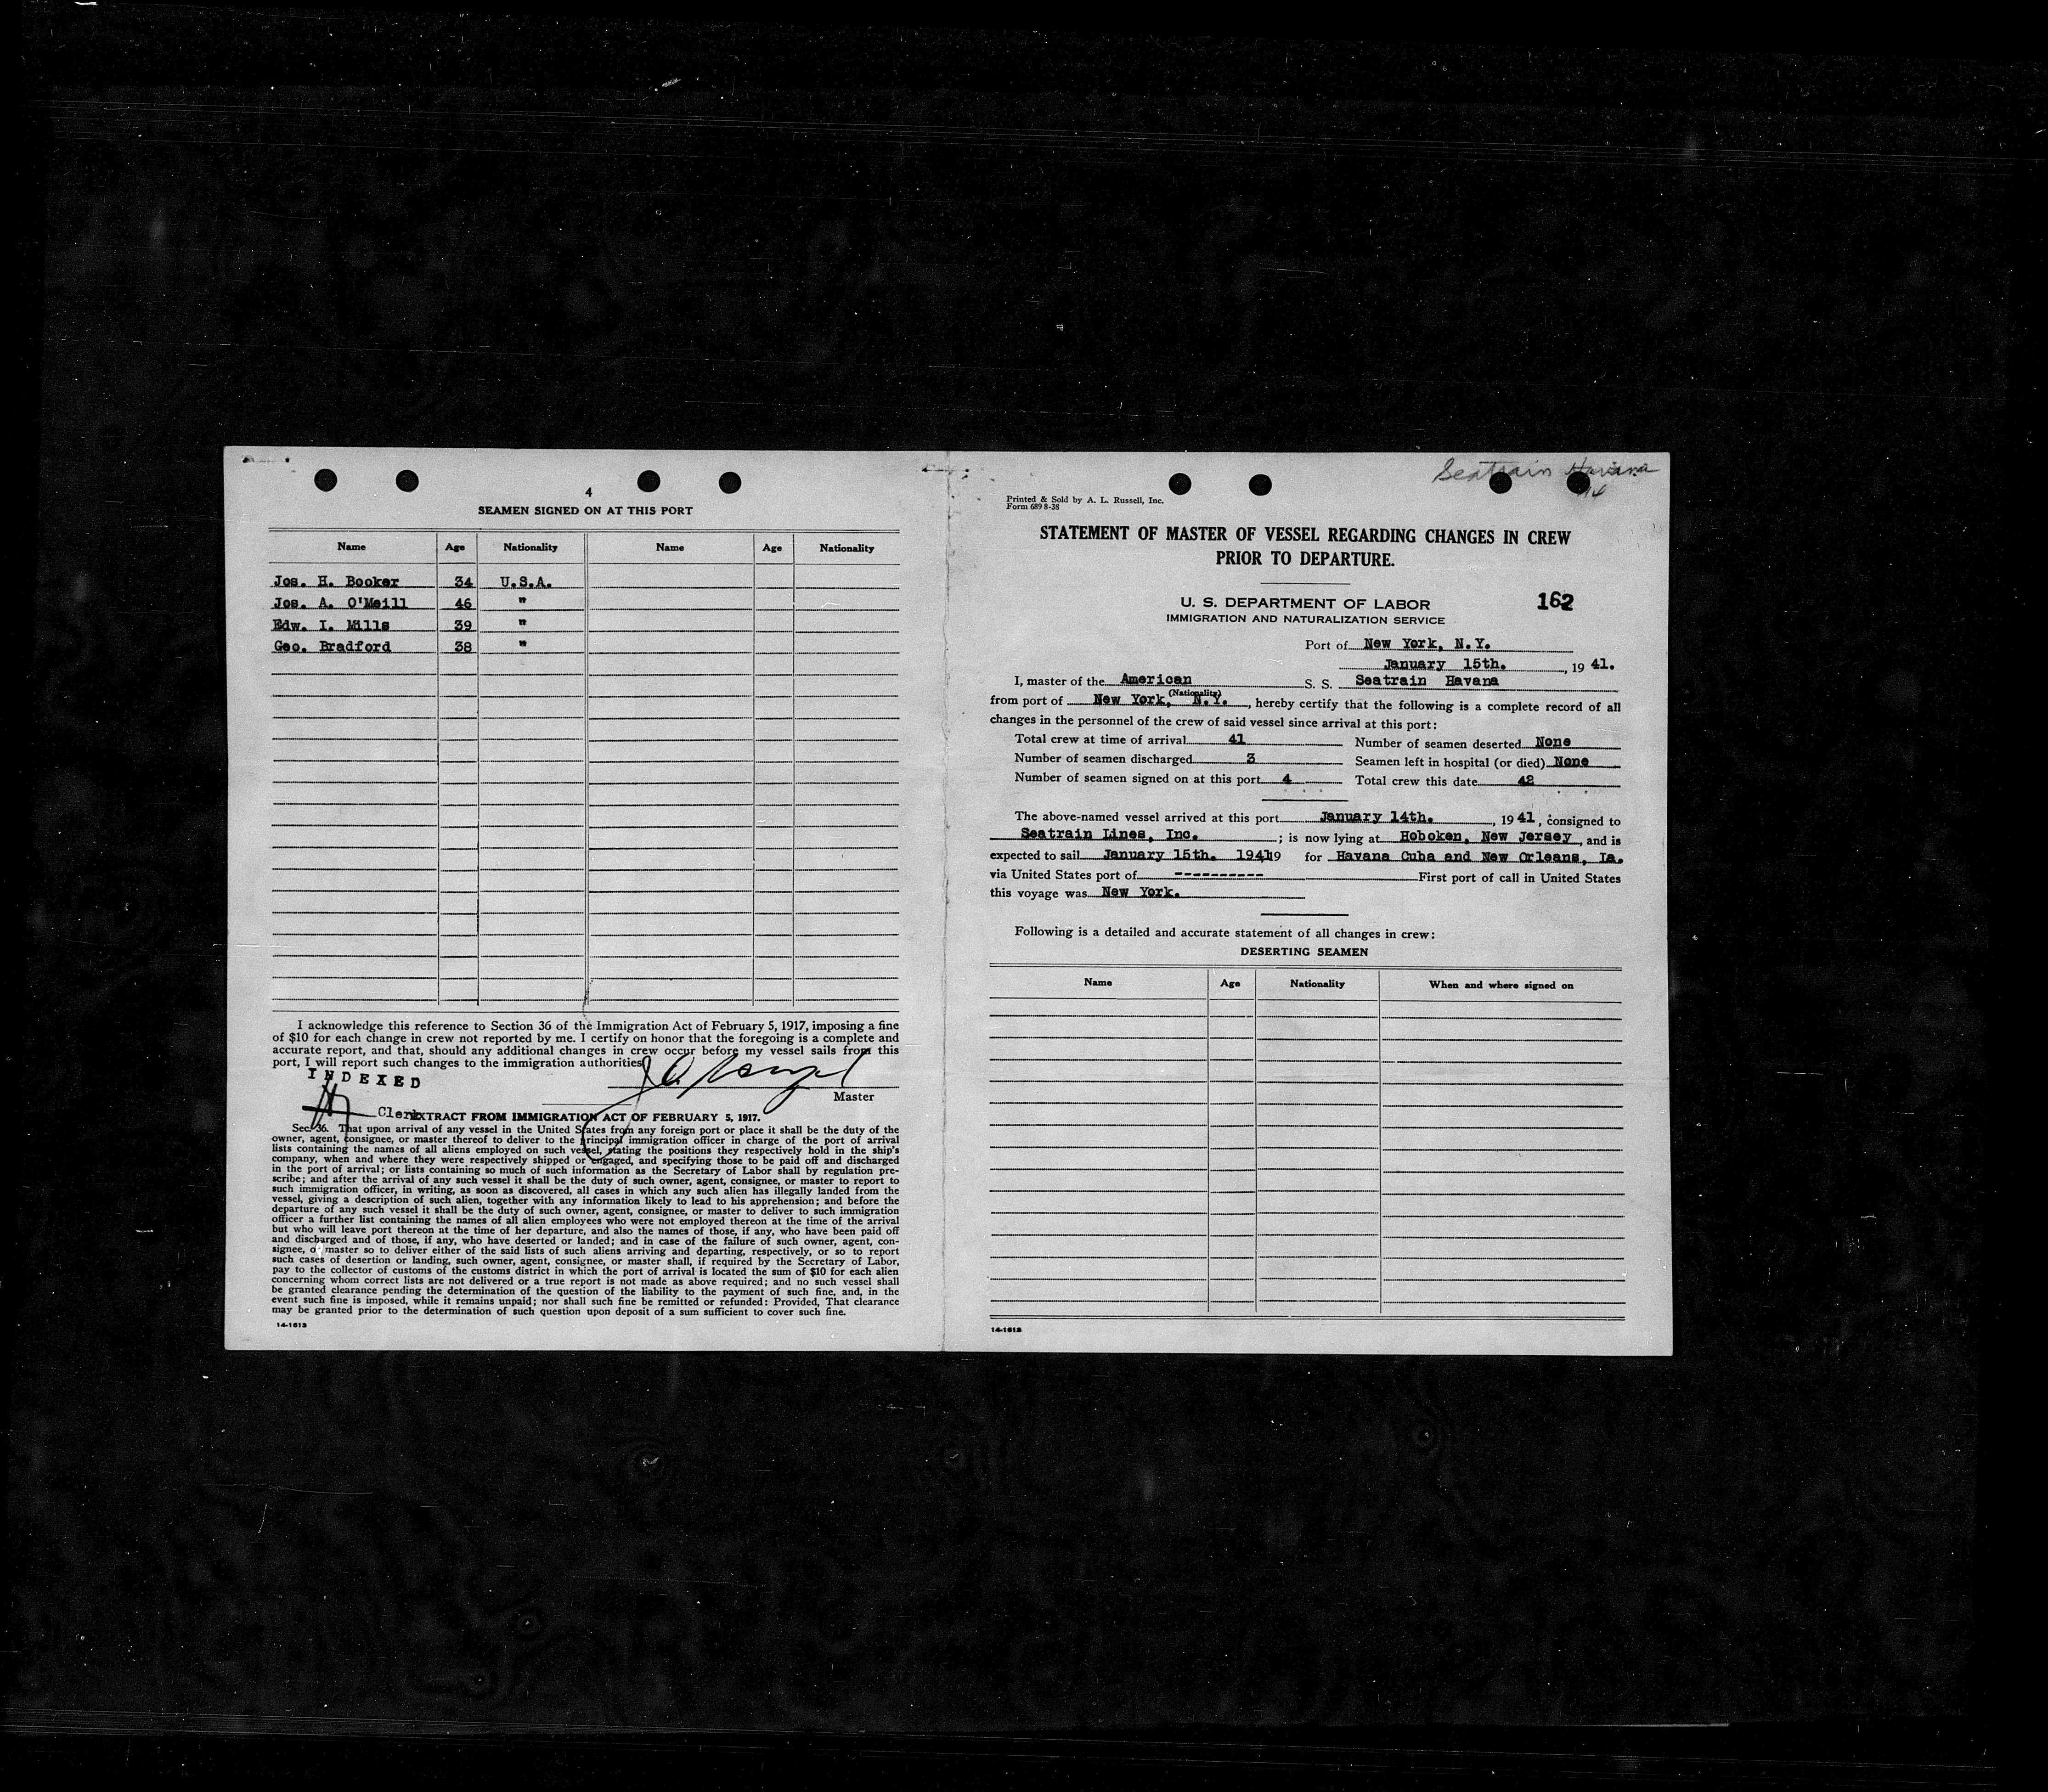 4
SEAMEN SIGNED ON AT THIS PORT
Name Age Nationality Name Age Nationality
Jos. H. Booker 34 U.S.A.
Jos. A. O'Meill 46 "
Edw. I. Mills 39 "
Geo. Bradford 38 "
I acknowledge this reference to Section 36 of the Immigration Act of February 5, 1917, imposing a fine
of $10 for each change in crew not reported by me. I certify on honor that the foregoing is a complete and
accurate report, and that, should any additional changes in crew occur before my vessel sails from this
port, I will report such changes to the immigration authorities
INDEXED
Master
Clerk
EXTRACT FROM IMMIGRATION ACT OF FEBRUARY 5, 1917.
Sec. 36. That upon arrival of any vessel in the United States from any foreign port or place it shall be the duty of the
owner, agent, consignee, or master thereof to deliver to the principal immigration officer in charge of the port of arrival
lists containing the names of all aliens employed on such vessel, stating the positions they respectively hold in the ship's
company, when and where they were respectively shipped or engaged, and specifying those to be paid off and discharged
in the port of arrival; or lists containing so much of such information as the Secretary of Labor shall by regulation pre-
scribe; and after the arrival of any such vessel it shall be the duty of such owner, agent, consignee, or master to report to
such immigration officer, in writing, as soon as discovered, all cases in which any such alien has illegally landed from the
vessel, giving a description of such alien, together with any information likely to lead to his apprehension; and before the
departure of any such vessel it shall be the duty of such owner, agent, consignee, or master to deliver to such immigration
officer a further list containing the names of all alien employees who were not employed thereon at the time of the arrival
but who will leave port thereon at the time of her departure, and also the names of those, if any, who have been paid off
and discharged and of those, if any, who have deserted or landed; and in case of the failure of such owner, agent, con-
signee, or master so to deliver either of the said lists of such aliens arriving and departing, respectively, or so to report
such cases of desertion or landing, such owner, agent, consignee, or master shall, if required by the Secretary of Labor,
pay to the collector of customs of the customs district in which the port of arrival is located the sum of $10 for each alien
concerning whom correct lists are not delivered or a true report is not made as above required; and no such vessel shall
be granted clearance pending the determination of the question of the liability to the payment of such fine, and, in the
event such fine is imposed, while it remains unpaid; nor shall such fine be remitted or refunded: Provided, That clearance
may be granted prior to the determination of such question upon deposit of a sum sufficient to cover such fine.
14-1613
Seatrain Havana
Printed & Sold by A. L. Russell, Inc.
Form 689 8-38
STATEMENT OF MASTER OF VESSEL REGARDING CHANGES IN CREW
PRIOR TO DEPARTURE.
U. S. DEPARTMENT OF LABOR
162
IMMIGRATION AND NATURALIZATION SERVICE
Port of New York, N.Y.
January 15th. , 19 41.
I, master of the American S. S. Seatrain Havana
(Nationality)
from port of New York, N.Y. , hereby certify that the following is a complete record of all
changes in the personnel of the crew of said vessel since arrival at this port:
Total crew at time of arrival 41 Number of seamen deserted None
Number of seamen discharged 3 Seamen left in hospital (or died) None
Number of seamen signed on at this port 4 Total crew this date 42
The above-named vessel arrived at this port January 14th. , 19 41, consigned to
Seatrain Lines, Inc. ; is now lying at Hoboken, New Jersey , and is
expected to sail January 15th. 1941 19 for Havana Cuba and New Orleans, La.
via United States port of ---------- First port of call in United States
this voyage was New York.
Following is a detailed and accurate statement of all changes in crew:
DESERTING SEAMEN
Name Age Nationality When and where signed on
14-1613